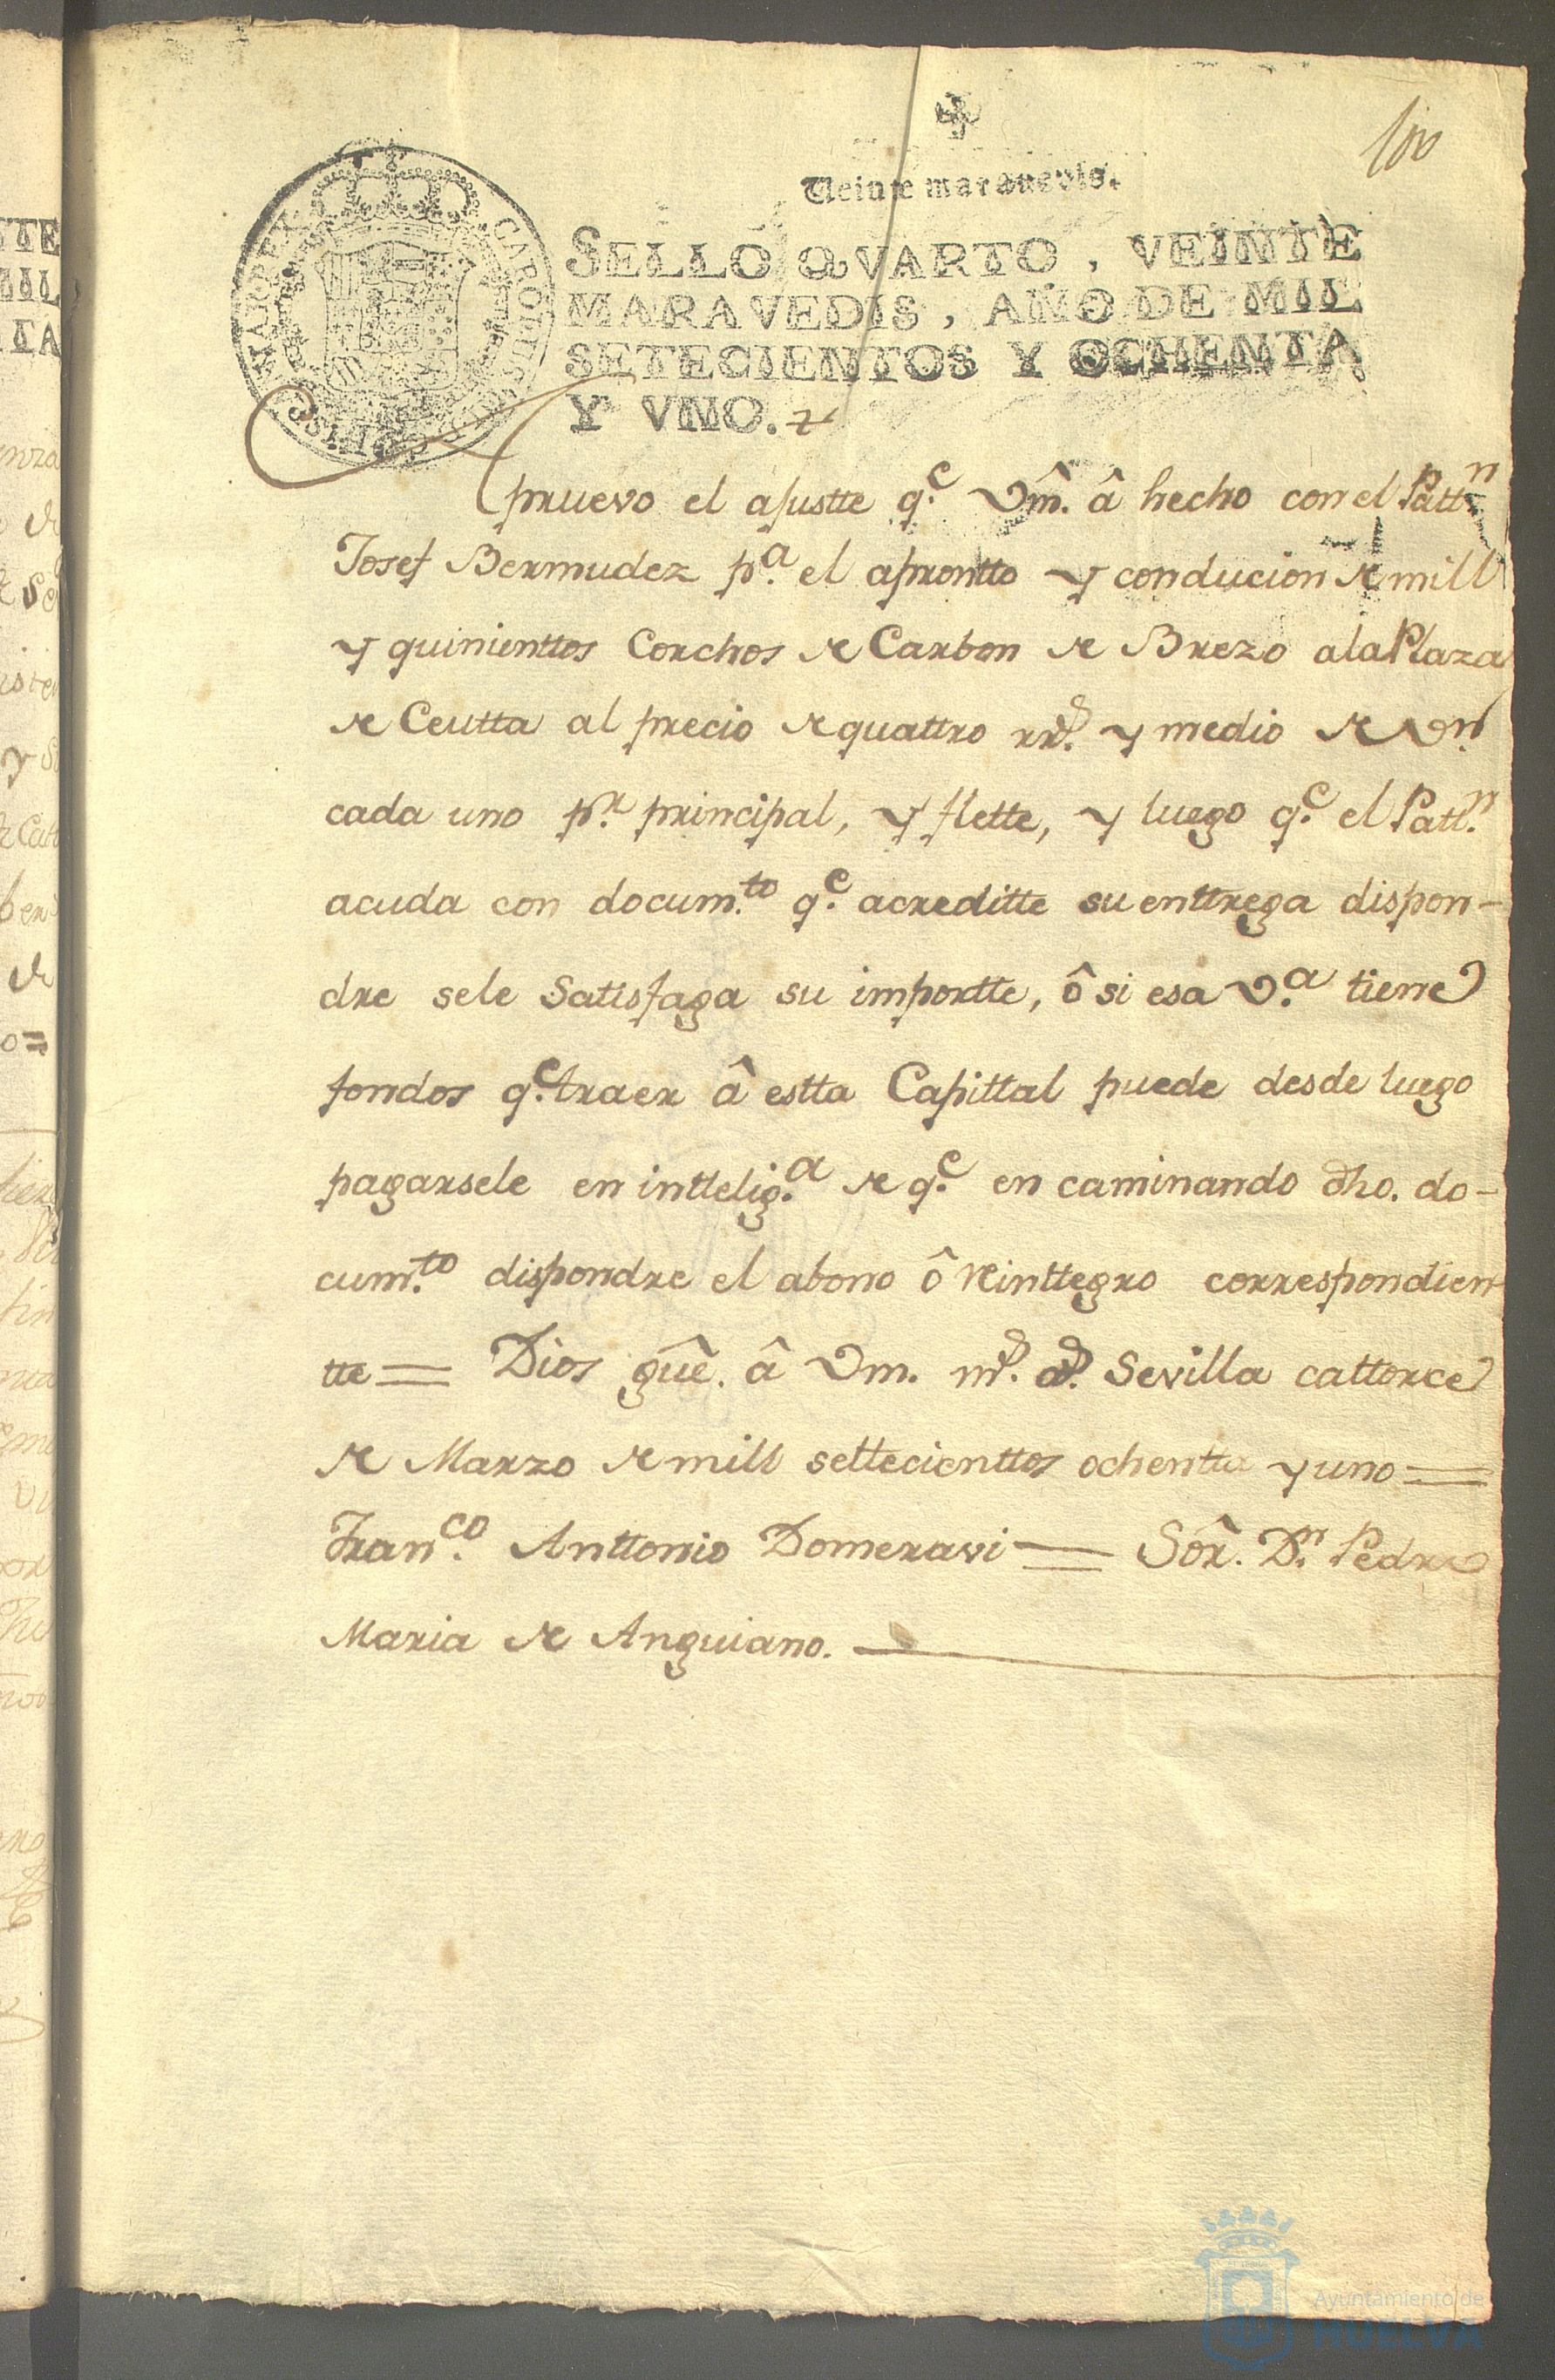 100
Veinte maravedis.
SELLO QVARTO, VEINTE
MARAVEDIS, AÑO DE MIL
SETECIENTOS Y OCHENTA
Y VNO.
Apruevo el ajustte q.e Vm̂. â hecho con el Pattn.
Josef Bermudez p.a el aprontto y conducion de mill
y quinienttos Corchos de Carbon de Brezo ala Plaza
de Ceutta al precio de quattro rr.s y medio de Vn.
cada uno p.r principal, y flette, y luego q.e el Patt.n
acuda con docum.to q.e acreditte su enttrega dispon-
dre sele Satisfaga su importte, ô si esa V.a tiene
fondos q.e traer â estta Capittal puede desde luego
pagarsele en inttelig.a de q.e en caminando dho. do-
cum.to dispondre el abono ô reinttegro correspondien
tte = Dios gûe. â Vm. m.s a.s Sevilla cattorce
de Marzo de mill settecienttos ochentta y uno =
Fran.co Anttonio Domeravi = Sôr. D.n Pedro
Maria de Anguiano.
Ayuntamiento de
HUELVA